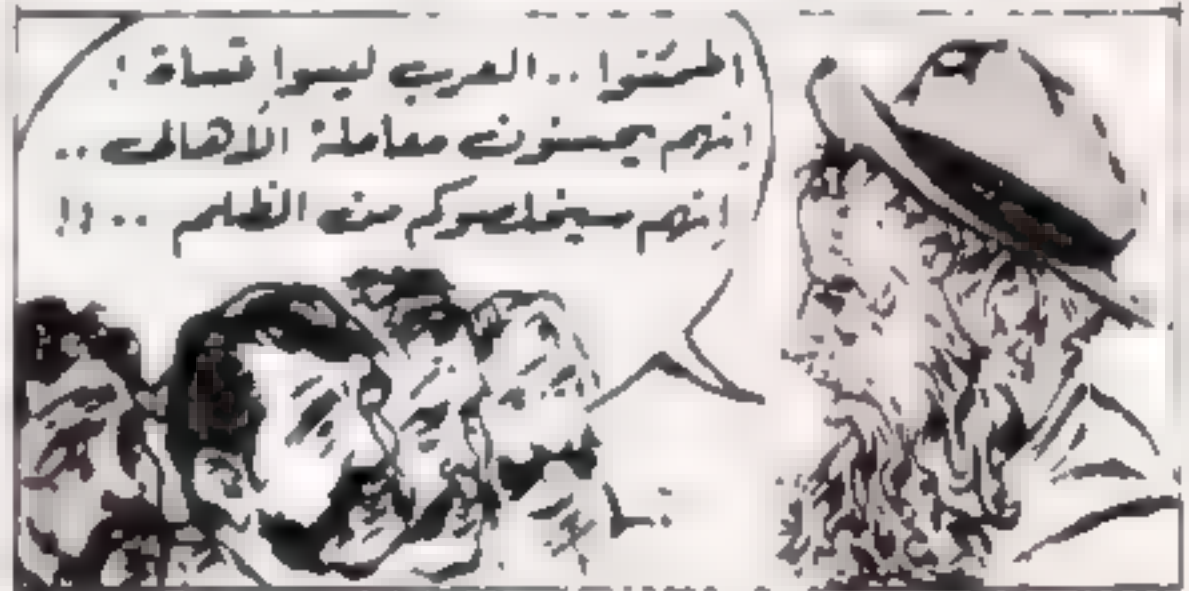 اطمئنوا .. العرب ليسوا قساة !
إنهم يحسنون معاملة الأهالى ..
إنهم سيخلصوكم من الظلم .. !!